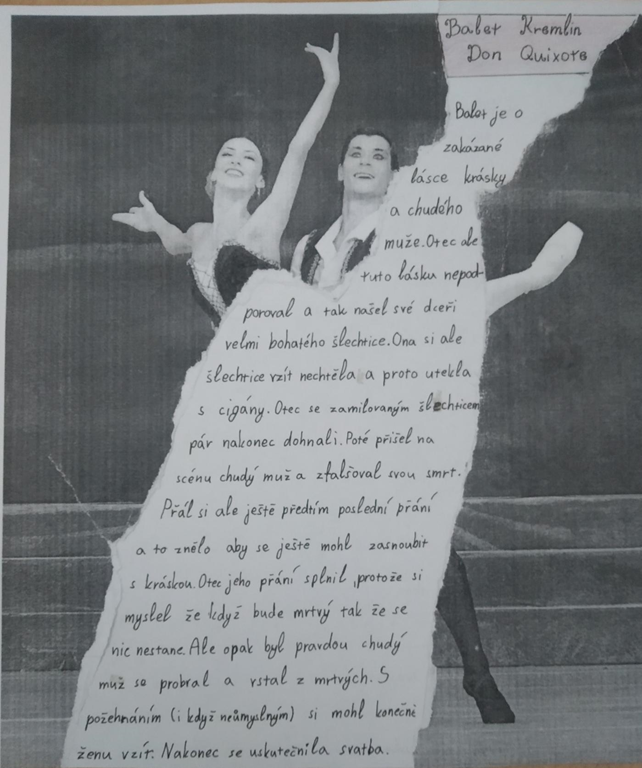 Balet Kremlin
Don Quixote
Balet je o
zakázané
lásce krásky
a chudého
muže. Otec ale
tuto lásku nepod-
poroval a tak našel své dceři
velmi bohatého šlechtice. Ona si ale
šlechtice vzít nechtěla a proto utekla
s cigány. Otec se zamilovaným šlechticem
pár nakonec dohnali. Poté přišel na
scénu chudý muž a zfalšoval svou smrt.
Přál si ale ještě předtím poslední přání
a to znělo aby se ještě mohl zasnoubit
s kráskou. Otec jeho přání splnil, protože si
myslel že když bude mrtvý tak že se
nic nestane. Ale opak byl pravdou chudý
muž se probral a vstal z mrtvých. S
požehnáním (i když neúmyslným) si mohl konečně
ženu vzít. Nakonec se uskutečnila svatba.